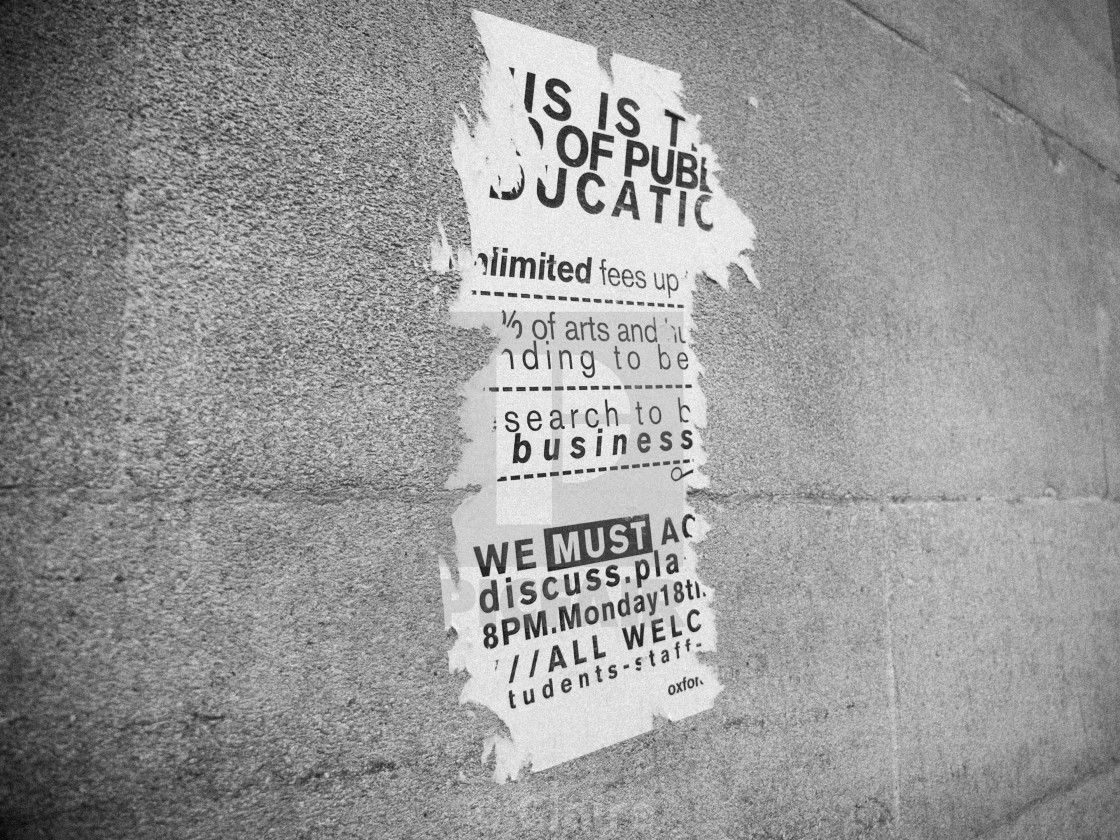 IS IS T
OF PUBL
DUCATIC
nlimited fees up
% of arts and hu
nding to be
search to b
business
WE MUST AC
discuss.pla
8PM.Monday18th
//ALL WELC
tudents-staff-
oxfor
© Claire